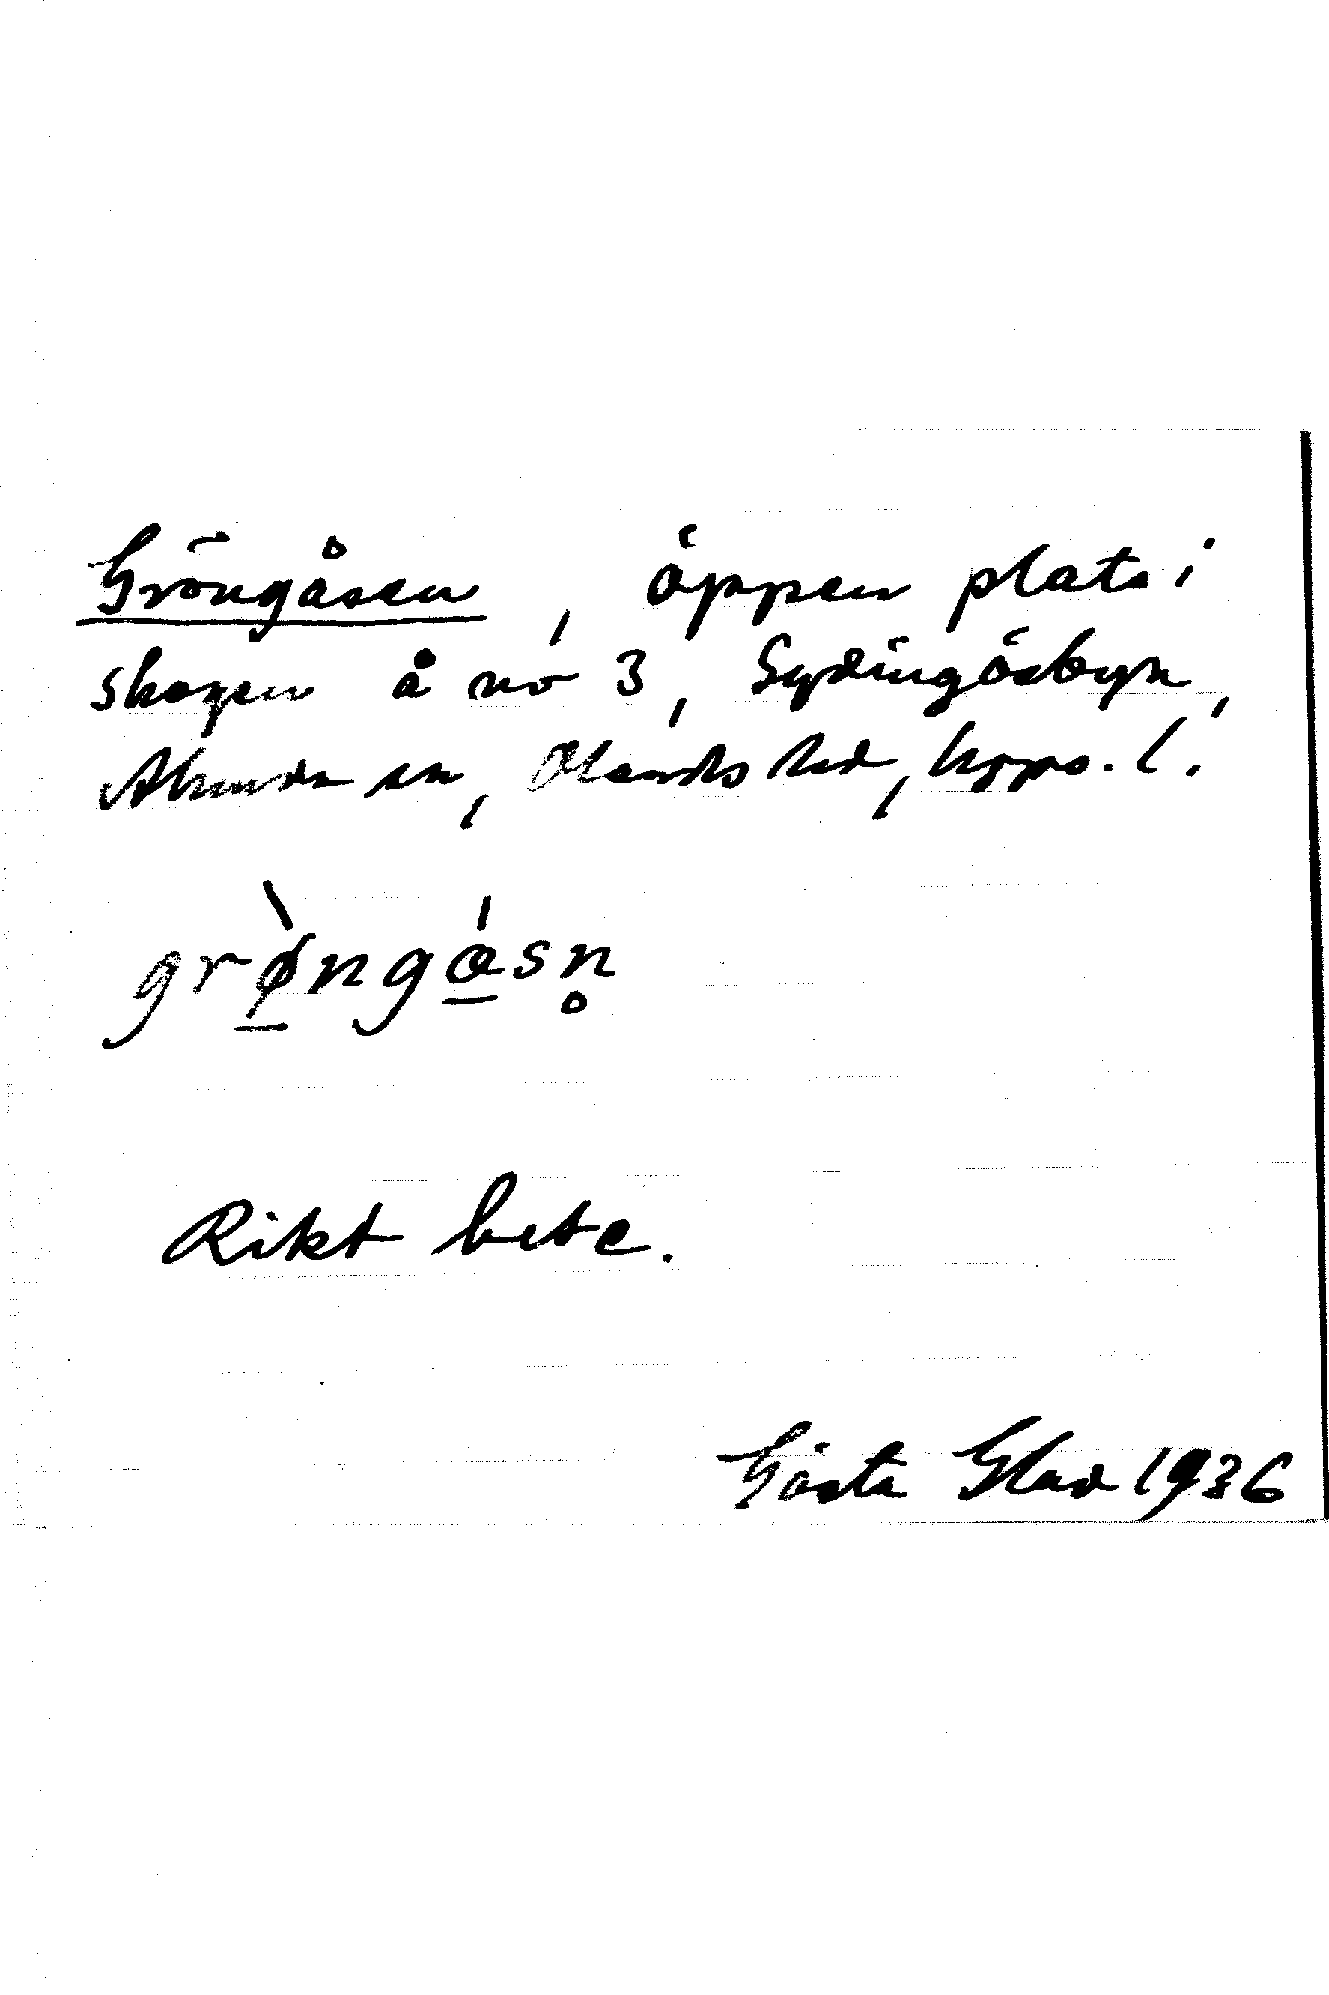 Gröngåsen, öppen plats i
skogen å no 3, Sydingösbyn,
Alunda sn, Olands hd, Upps. l.
grø̀ngåsn̥
Rikt bete.
Gösta Glad 1936